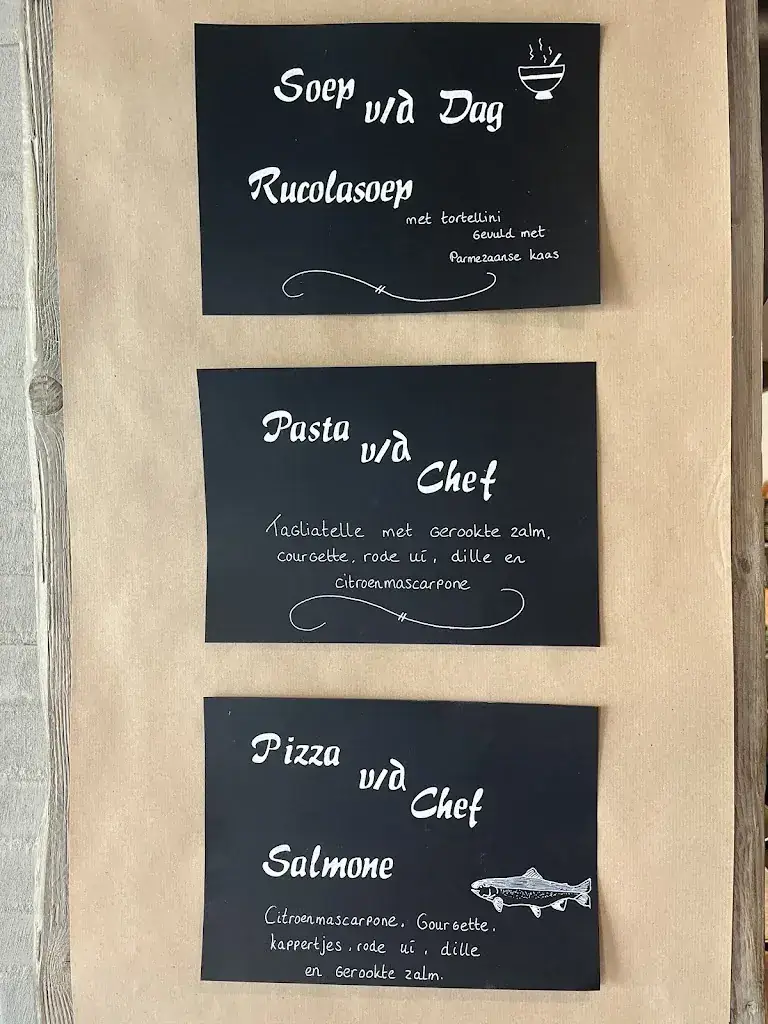 Soep v/d Dag
Rucolasoep
met tortellini
Gevuld met
Parmezaanse kaas
Pasta v/d Chef
Tagliatelle met Gerookte zalm,
courgette, rode ui, dille en
citroenmascarpone
Pizza v/d Chef
Salmone
Citroenmascarpone, Gourgette,
kappertjes, rode ui, dille
en Gerookte zalm.